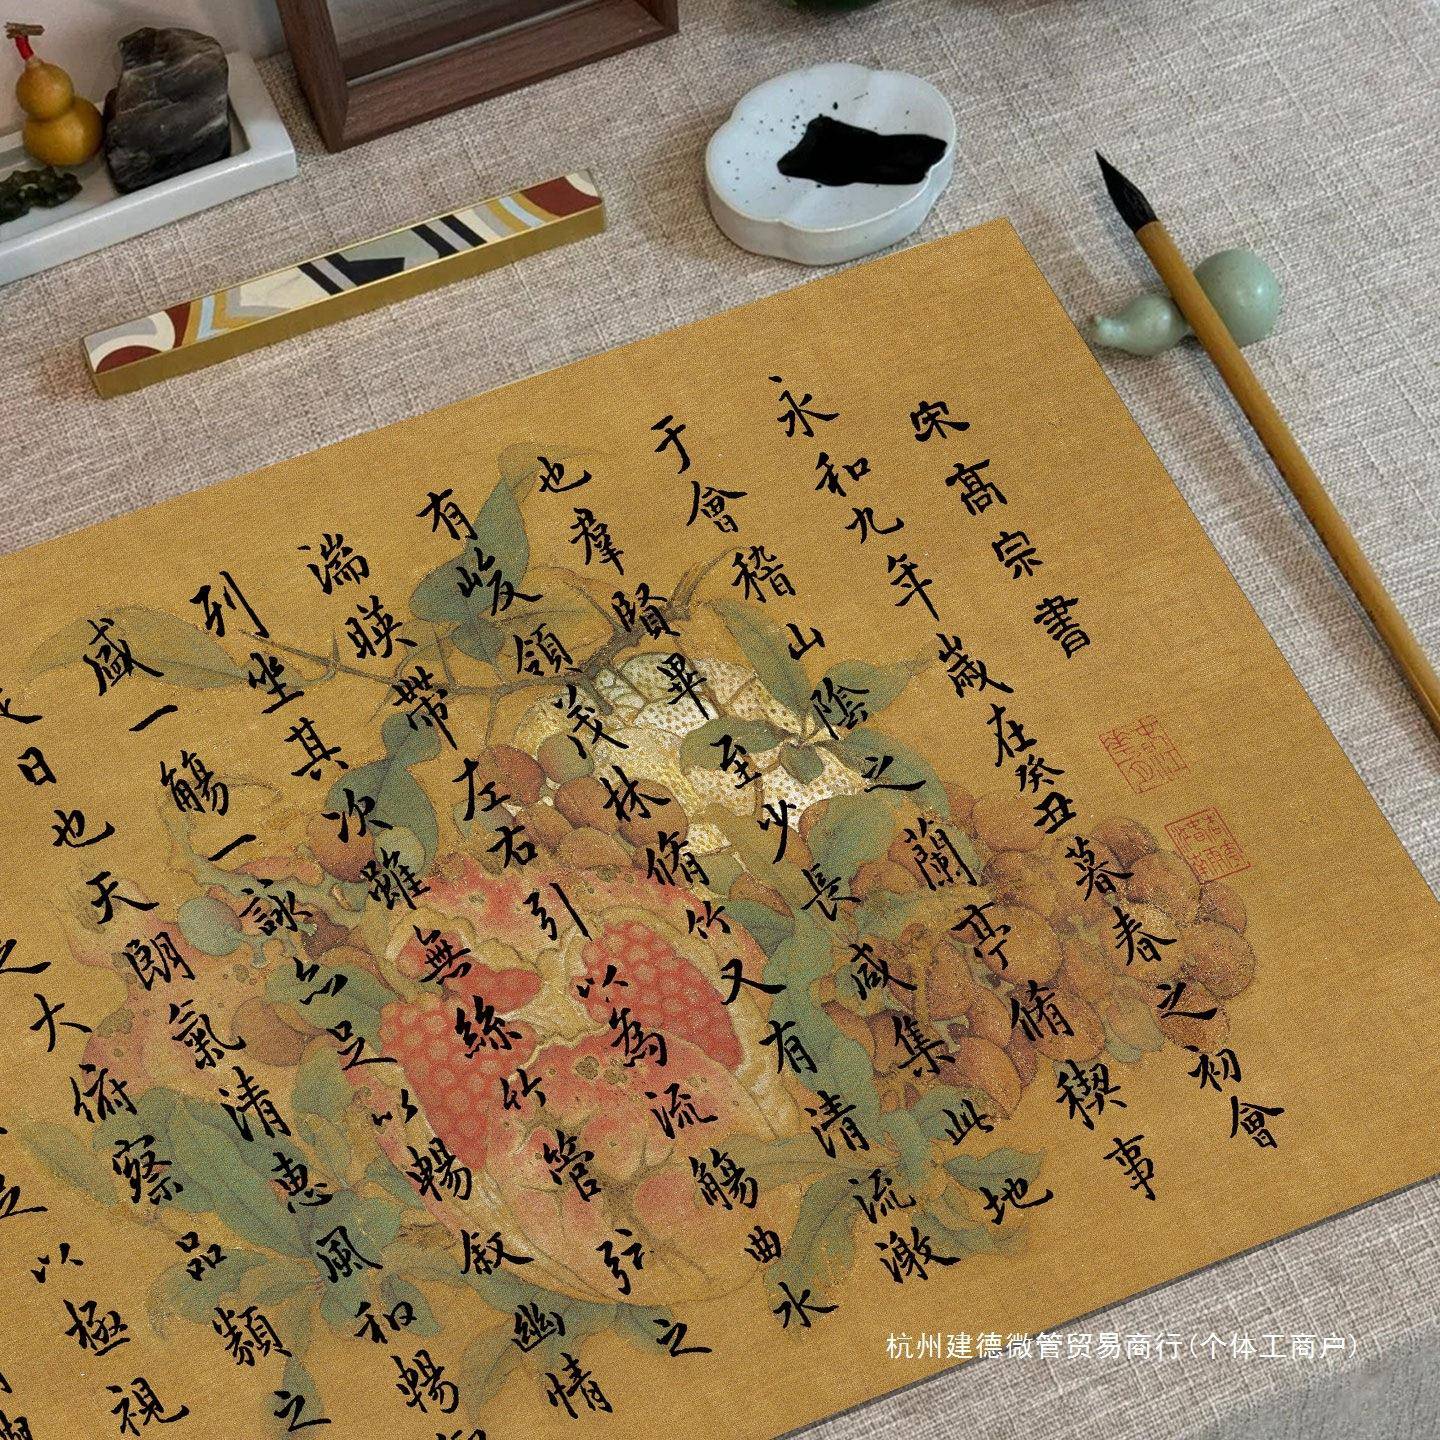 宋高宗書
永和九年歲在癸丑暮春之初會
于會稽山陰之蘭亭脩稧事
也羣賢畢至少長咸集此地
有峻領茂林脩竹又有清流激
湍暎帶左右引以為流觴曲水
列坐其次雖無絲竹管弦之
盛一觴一詠亦足以暢叙幽情
是日也天朗氣清惠風和暢
之大俯察品類之
足以極視
杭州建德微管贸易商行(个体工商户)